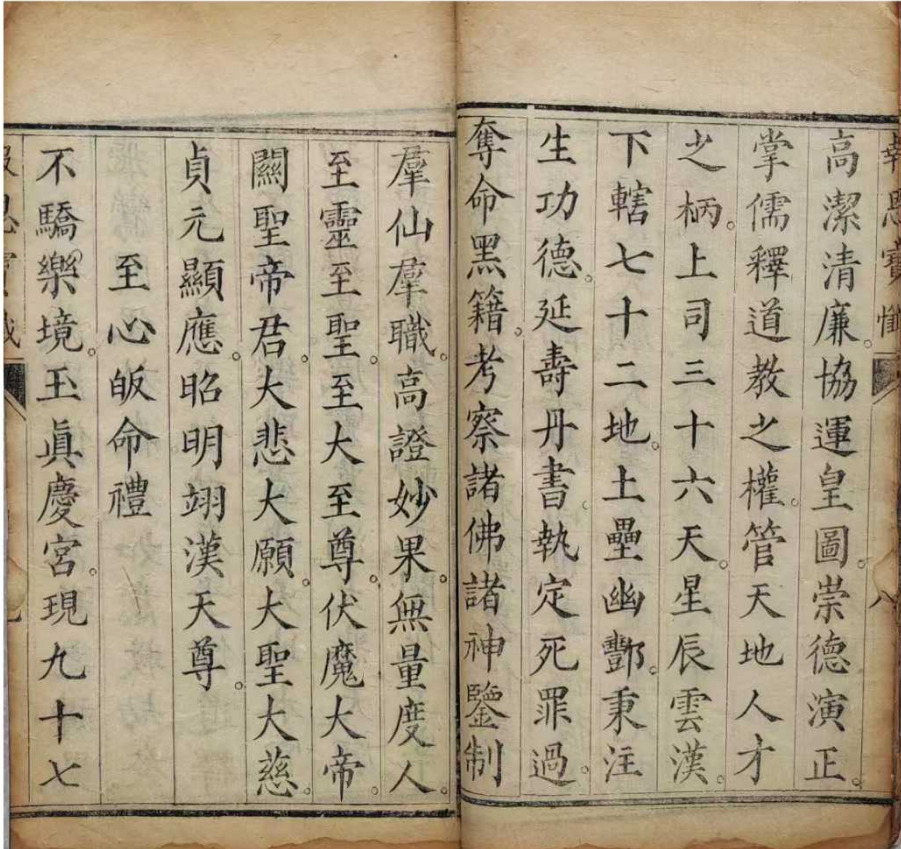 報恩寶懺
八
高潔清廉。協運皇圖。崇德演正。
掌儒釋道教之權。管天地人才
之柄。上司三十六天。星辰雲漢。
下轄七十二地。土壘幽酆。秉注
生功德。延壽丹書。執定死罪過。
奪命黑籍。考察諸佛諸神鑒制
羣仙羣職。高證妙果。無量度人。
至靈至聖。至大至尊。伏魔大帝。
關聖帝君。大悲大願。大聖大慈。
貞元顯應。昭明翊漢天尊。
至心皈命禮
不驕樂境。玉眞慶宮。現九十七